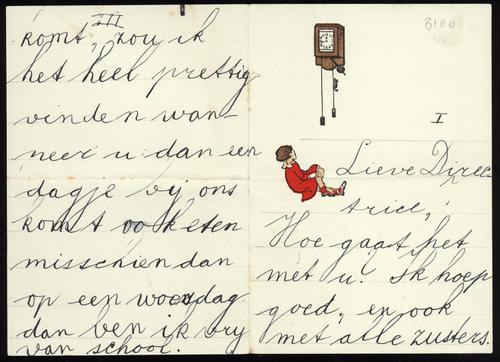 III
komt, zou ik
het heel prettig
vinden wan-
neer u dan een
dagje bij ons
komt ook eten
misschien dan
op een woensdag
dan ben ik vrij
van school.
8100
I
Lieve Direc
trice,
Hoe gaat het
met u. Ik hoop
goed, en ook
met alle zusters.